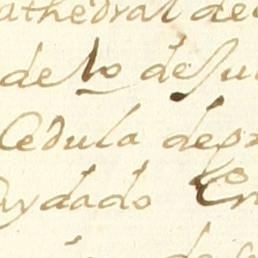 athedral de
de lo de su
Cedula dep
uydado En